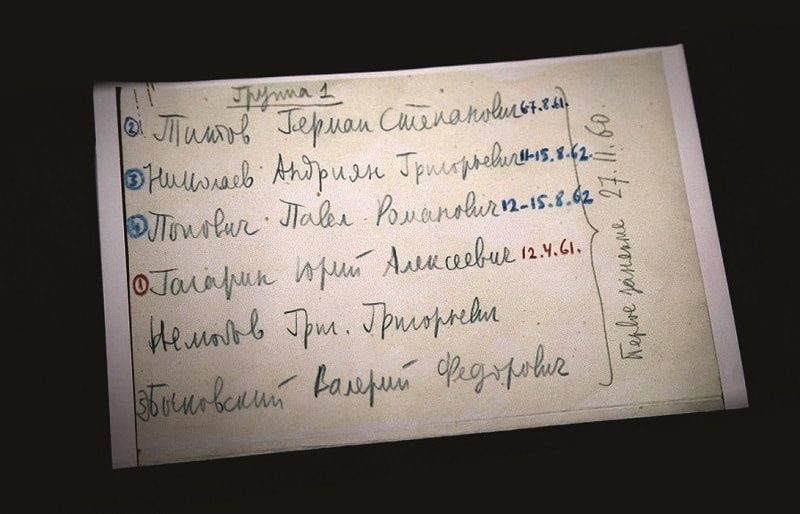 Группа 1
② Титов Герман Степанович 6-7.8.61.
③ Николаев Андриян Григорьевич 11-15.8.62
④ Попович Павел Романович 12-15.8.62
① Гагарин Юрий Алексеевич 12.4.61.
Нелюбов Григ. Григорьевич
Быковский Валерий Федорович
Первое занятие 27.11.60.